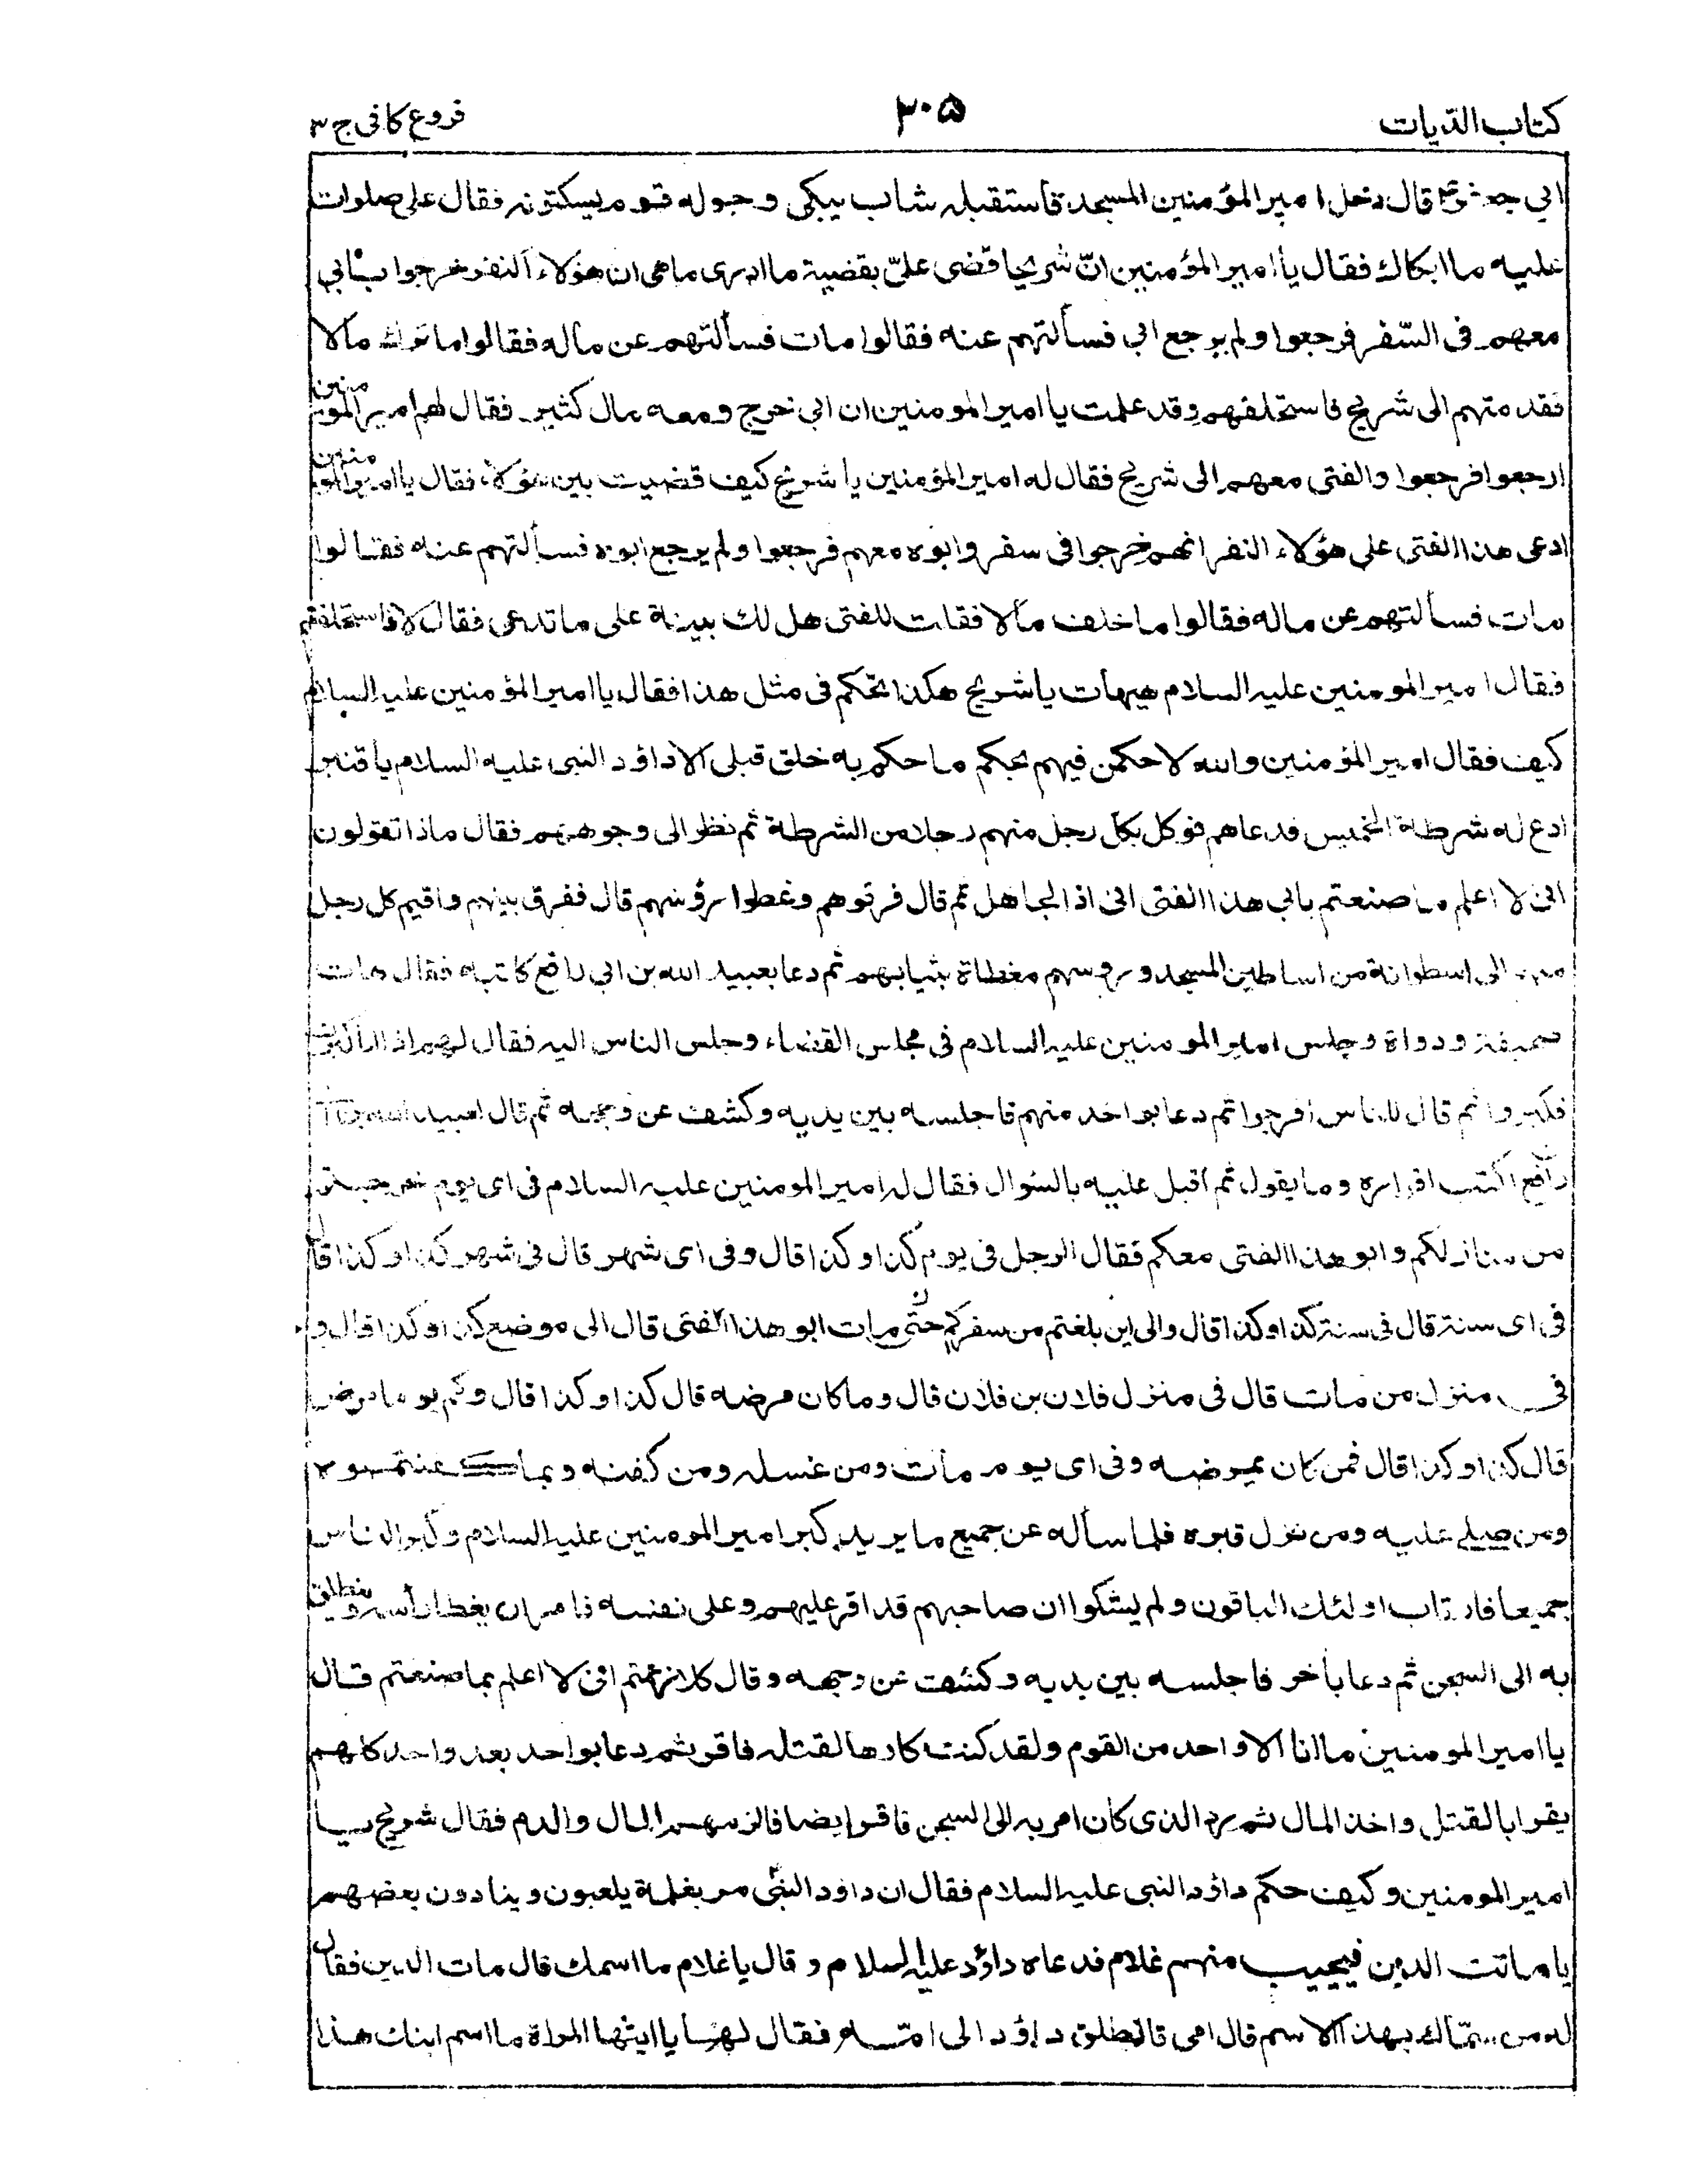 كتاب الديات
٣٠٥
فروع كافى ج ٣
ابي جعفر ع قال دخل امير المؤمنين المسجد فاستقبله شاب يبكى وحوله قوم يسكتونه فقال على صلوات
عليه ما ابكاك فقال يا امير المؤمنين انّ شريحا قضى علىّ بقضية ما ادرى ماهى ان هؤلاء النفر خرجوا بابي
معهم فى السّفر فرجعوا ولم يرجع ابي فسألتهم عنه فقالوا مات فسألتهم عن ماله فقالوا ما ترك مالا
فقدمتهم الى شريح فاستحلفهم وقد علمت يا امير المومنين ان ابي خرج ومعه مال كثير فقال لهم امير المومنين
ارجعوا فرجعوا والفتى معهم الى شريح فقال له امير المؤمنين يا شريح كيف قضيت بين هؤلاء فقال يا امير المومنين
ادعى هذا الفتى على هؤلاء النفر انهم خرجوا فى سفر وابوه معهم فرجعوا ولم يرجع ابوه فسألتهم عنه فقالوا
مات فسألتهم عن ماله فقالوا ما خلف مالا فقلت للفتى هل لك بينة على ما تدعى فقال لا فاستحلفتهم
فقال امير المومنين عليه السلام هيهات يا شريح هكذا تحكم فى مثل هذا فقال يا امير المؤمنين عليه السلام
كيف فقال امير المؤمنين والله لاحكمن فيهم بحكم ما حكم به خلق قبلى الا داؤد النبى عليه السلام يا قنبر
ادع له شرطة الخميس فدعاهم فوكل بكل رجل منهم رجلا من الشرطة ثم نظر الى وجوههم فقال ماذا تقولون
انى لا اعلم ما صنعتم بابي هذا الفتى انى اذا لجاهل ثم قال فرقوهم وغطوا رؤسهم قال ففرق بينهم واقيم كل رجل
منهم الى اسطوانة من اساطين المسجد وروسهم مغطاة بثيابهم ثم دعا بعبيد الله بن ابي رافع كاتبه فقال هات
صحيفة ودواة وجلس امير المومنين عليه السلام فى مجلس القضاء وجلس الناس اليه فقال لهم اذا انا كبرت
فكبروا ثم قال للناس افرجوا ثم دعا بواحد منهم فاجلسه بين يديه وكشف عن وجهه ثم قال لعبيد الله بن ابي
رافع اكتب اقراره وما يقول ثم أقبل عليه بالسّوال فقال له امير المومنين عليه السلام فى اى يوم خرجتم
من منازلكم وابو هذا الفتى معكم فقال الرجل فى يوم كذا وكذا قال وفى اى شهر قال فى شهر كذا وكذا قال
فى اى سنة قال فى سنة كذا وكذا قال والى اين بلغتم من سفركم حتّى مات ابو هذا الفتى قال الى موضع كذا وكذا قال و
فى منزل من مات قال فى منزل فلان بن فلان قال وما كان مرضه قال كذا وكذا قال وكم يوما مرض
قال كذا وكذا قال فمن كان يمرضه وفى اى يوم مات ومن غسله ومن كفنه وبما كفنتموه
ومن صلى عليه ومن نزل قبره فلما سأله عن جميع ما يريد كبر امير المومنين عليه السلام وكبر الناس
جميعا فارتاب اولئك الباقون ولم يشكوا ان صاحبهم قد اقر عليهم وعلى نفسه فامر ان يغطا رأسه وينطلق
به الى السجن ثم دعا بأخر فاجلسه بين يديه وكشف عن وجهه وقال كلا زعمتم انى لا اعلم بما صنعتم قال
يا امير المومنين ما انا الا واحد من القوم ولقد كنت كارها لقتله فاقر ثم دعا بواحد بعد واحد كلهم
يقرا بالقتل واخذ المال ثم رد الذى كان امر به الى السجن فاقر ايضا فالزمهم المال والدم فقال شريح يا
امير المومنين وكيف حكم داؤد النبى عليه السلام فقال ان داود النبىّ مر بغلمة يلعبون وينادون بعضهم
يا مات الدين فيجيب منهم غلام فدعاه داؤد عليه السلام وقال يا غلام ما اسمك قال مات الدين فقال
له من سمّاك بهذا الاسم قال امى فانطلق داؤد الى امّه فقال لها يا ايتها المراة ما اسم ابنك هذا